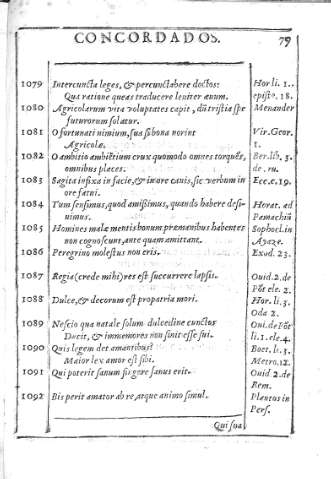 CONCORDADOS. 79
1079 Intercuncta leges, & percunctabere doctos: Hor li. 1.
Qua ratione queas traducere leniter ævum. epistο. 18.
1080 Agricolarum vita voluptates capit, dũ tristia spe Menander
futurorum solatur.
1081 O fortunati nimium, sua si bona norint Vir. Geor.
Agricolæ. 1.
1082 O ambitio ambiẽtium crux quomodo omnes torquẽs, Ber. lib. 3.
omnibus places. de.
1083 Sagita infixa in facie, & in ore canis, sic verbum in Ecc. c. 19.
ore fatui.
1084 Tum sensimus, quod amissimus, quando habere desi- Horat. ad
nimus. Pamachiũ
1085 Homines malæ mentis bonum præ manibus habentes Sophocl. in
non cognoscunt, ante quam amittant. Ayaze.
1086 Peregrino molestus non eris. Exod. 23.
1087 Regia (crede mihi) res est succurrere lapsis. Ouid. 2. de
Põt ele. 2.
1088 Dulce, & decorum est pro patria mori. Hor. li. 3.
Oda 2.
1089 Nescio qua natale solum dulcedine cunctos Oui. de Põt
Ducit, & immemores non sinit esse sui. li. 1. ele. 4.
1090 Quis legem det amantibus? Boet. li. 3.
Maior lex amor est sibi. Metro. 12.
1091 Qui poterit sanum fingere sanus erit. Ouid 2. de
Rem.
1092 Bis perit amator ab re, atque animo simul. Plautos in
Pers.
Qui sua